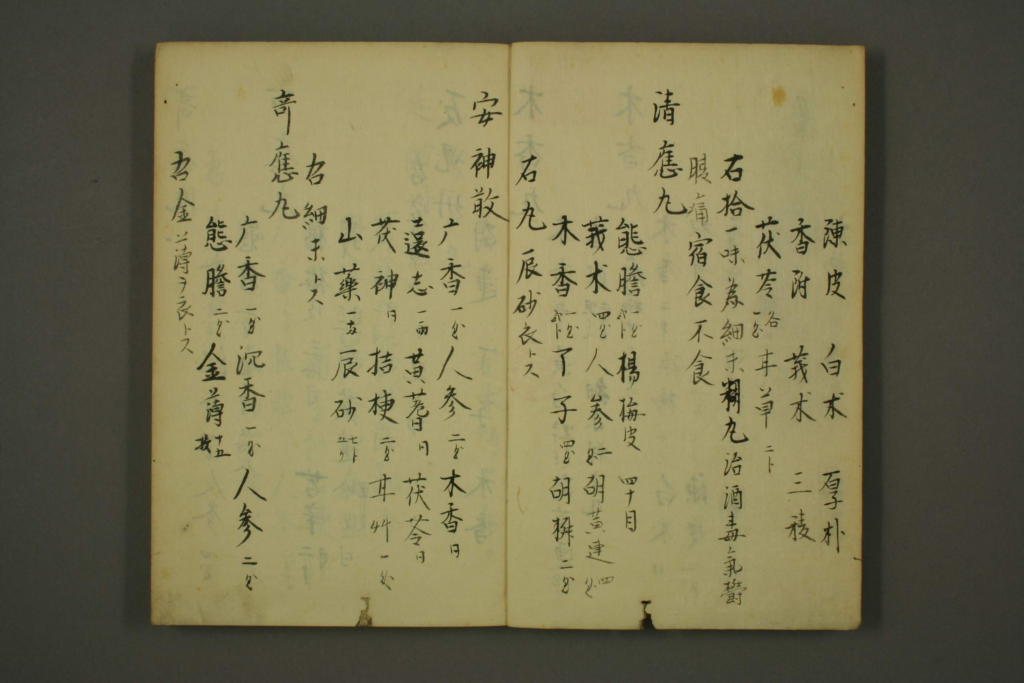 陳皮 白朮 厚朴
香附 莪朮 三稜
茯苓 各一匁 甘草 二卜
右拾一味為細末糊丸治酒毒氣鬱
腹痛宿食不食
清應丸
熊膽 楊梅皮 四十目
莪朮 四匁 人參 二匁 胡黄連 四匁
木香 丁子 四匁 胡椒 二匁
右丸辰砂衣トス
安神散
广香 一匁 人參 二匁 木香 同
遠志 一両 黄蓍 同 茯苓 同
茯神 同 桔梗 二匁 甘艸 一匁
山藥 辰砂
右細末トス
奇應丸
广香 一匁 沉香 一匁 人參 二匁
熊膽 二匁 金薄 十五枚
右金薄ヲ衣トス